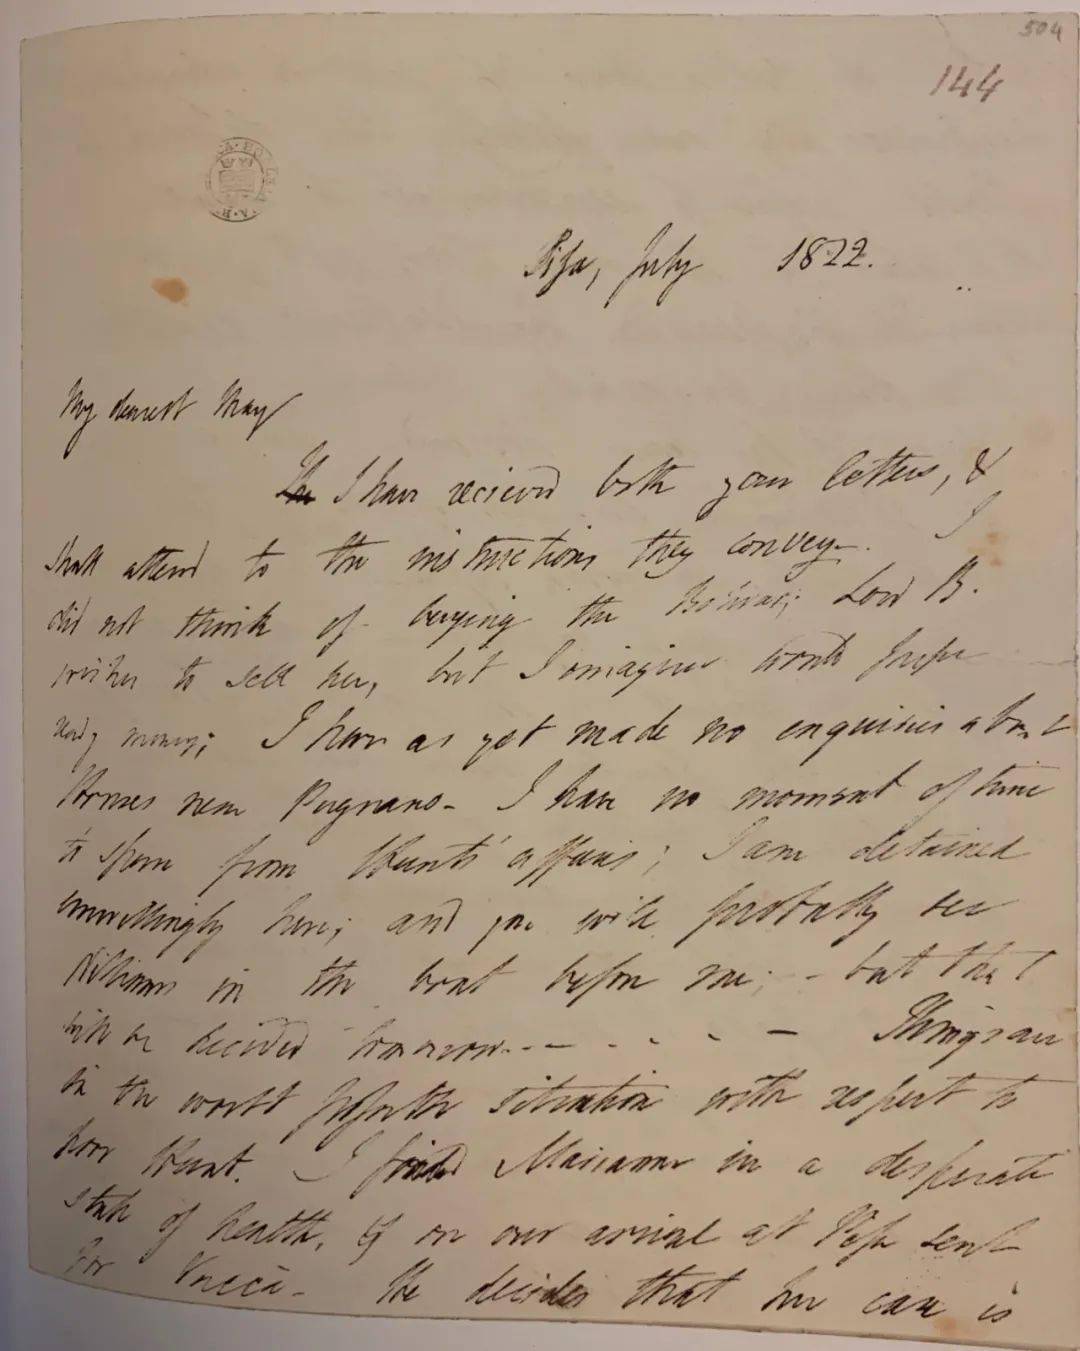 504
144
Pisa, July 1822.
My dearest Mary
The I have recieved both your letters, &
shall attend to the instructions they convey. I
did not think of buying the Bolivar; Lord B.
wishes to sell her, but I imagine would prefer
ready money; I have as yet made no enquiries about
Houses near Pugnano - I have no moment of time
to spare from Hunt's affairs; I am detained
unwillingly here; and you will probably see
Williams in the boat before me; - but that
will be decided tomorrow. - - - - - - Things are
in the worst possible situation with respect to
poor Hunt. I find Marianne in a desperate
state of health, & on our arrival at Pisa sent
for Vaccà - He decides that her case is